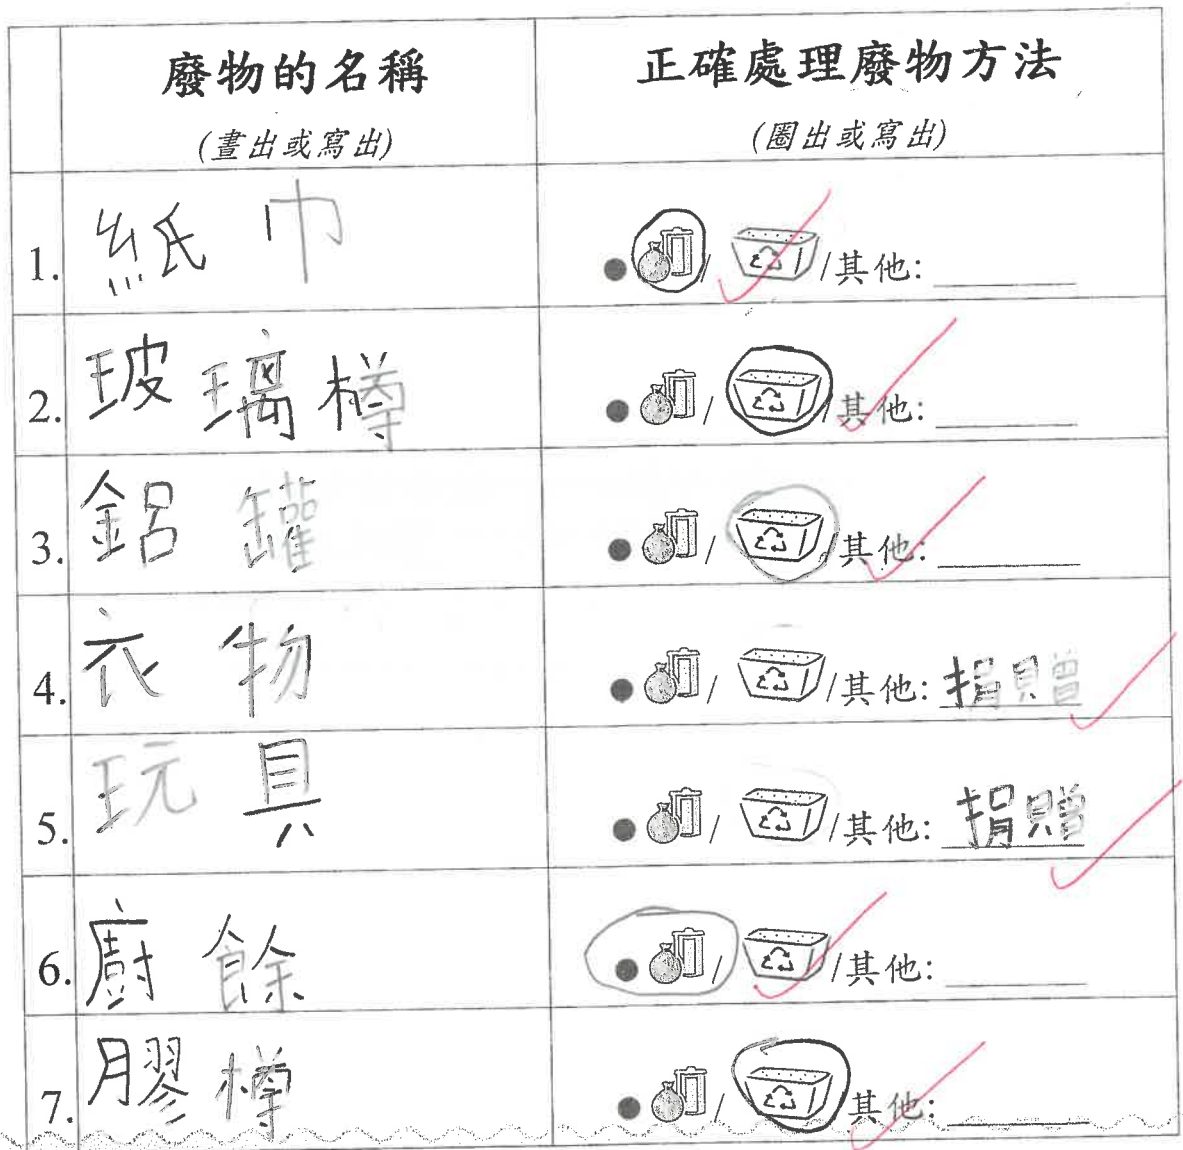 廢物的名稱
(畫出或寫出)
正確處理廢物方法
(圈出或寫出)
1. 紙巾
/ /其他:
2. 玻璃樽
/ /其他:
3. 鋁罐
/ /其他:
4. 衣物
/ /其他: 捐贈
5. 玩具
/ /其他: 捐贈
6. 廚餘
/ /其他:
7. 膠樽
/ /其他: